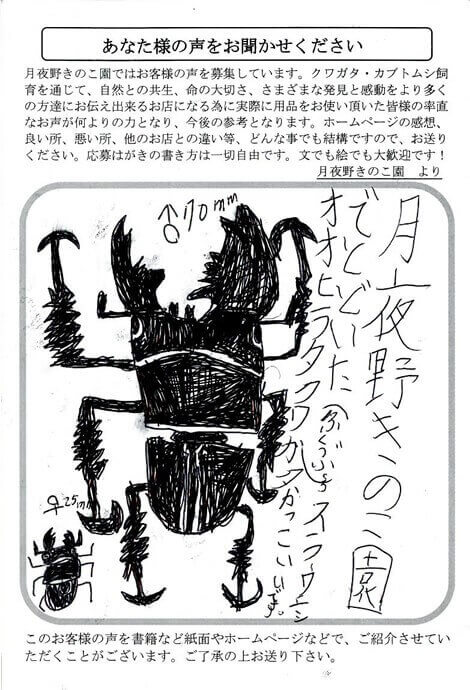 あなた様の声をお聞かせください
月夜野きのこ園ではお客様の声を募集しています。クワガタ・カブトムシ飼
育を通じて、自然との共生、命の大切さ、さまざまな発見と感動をより多く
の方達にお伝え出来るお店になる為に実際に用品をお使い頂いた皆様の率直
なお声が何よりの力となり、今後の参考となります。ホームページの感想、
良い所、悪い所、他のお店との違い等、どんな事でも結構ですので、お送り
ください。応募はがきの書き方は一切自由です。文でも絵でも大歓迎です！
月夜野きのこ園　より
月夜野きのこ園
でとどいた
オオヒラタクワガタかっこいいです。
♂70mm
♀25mm
このお客様の声を書籍など紙面やホームページなどで、ご紹介させてい
ただくことがございます。ご了承の上お送り下さい。